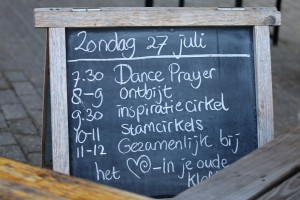 Zondag 27 juli
7.30 Dance Prayer
8-9 ontbijt
9.30 inspiratiecirkel
10-11 stamcirkels
11-12 Gezamenlijk bij
het ♡-in je oude